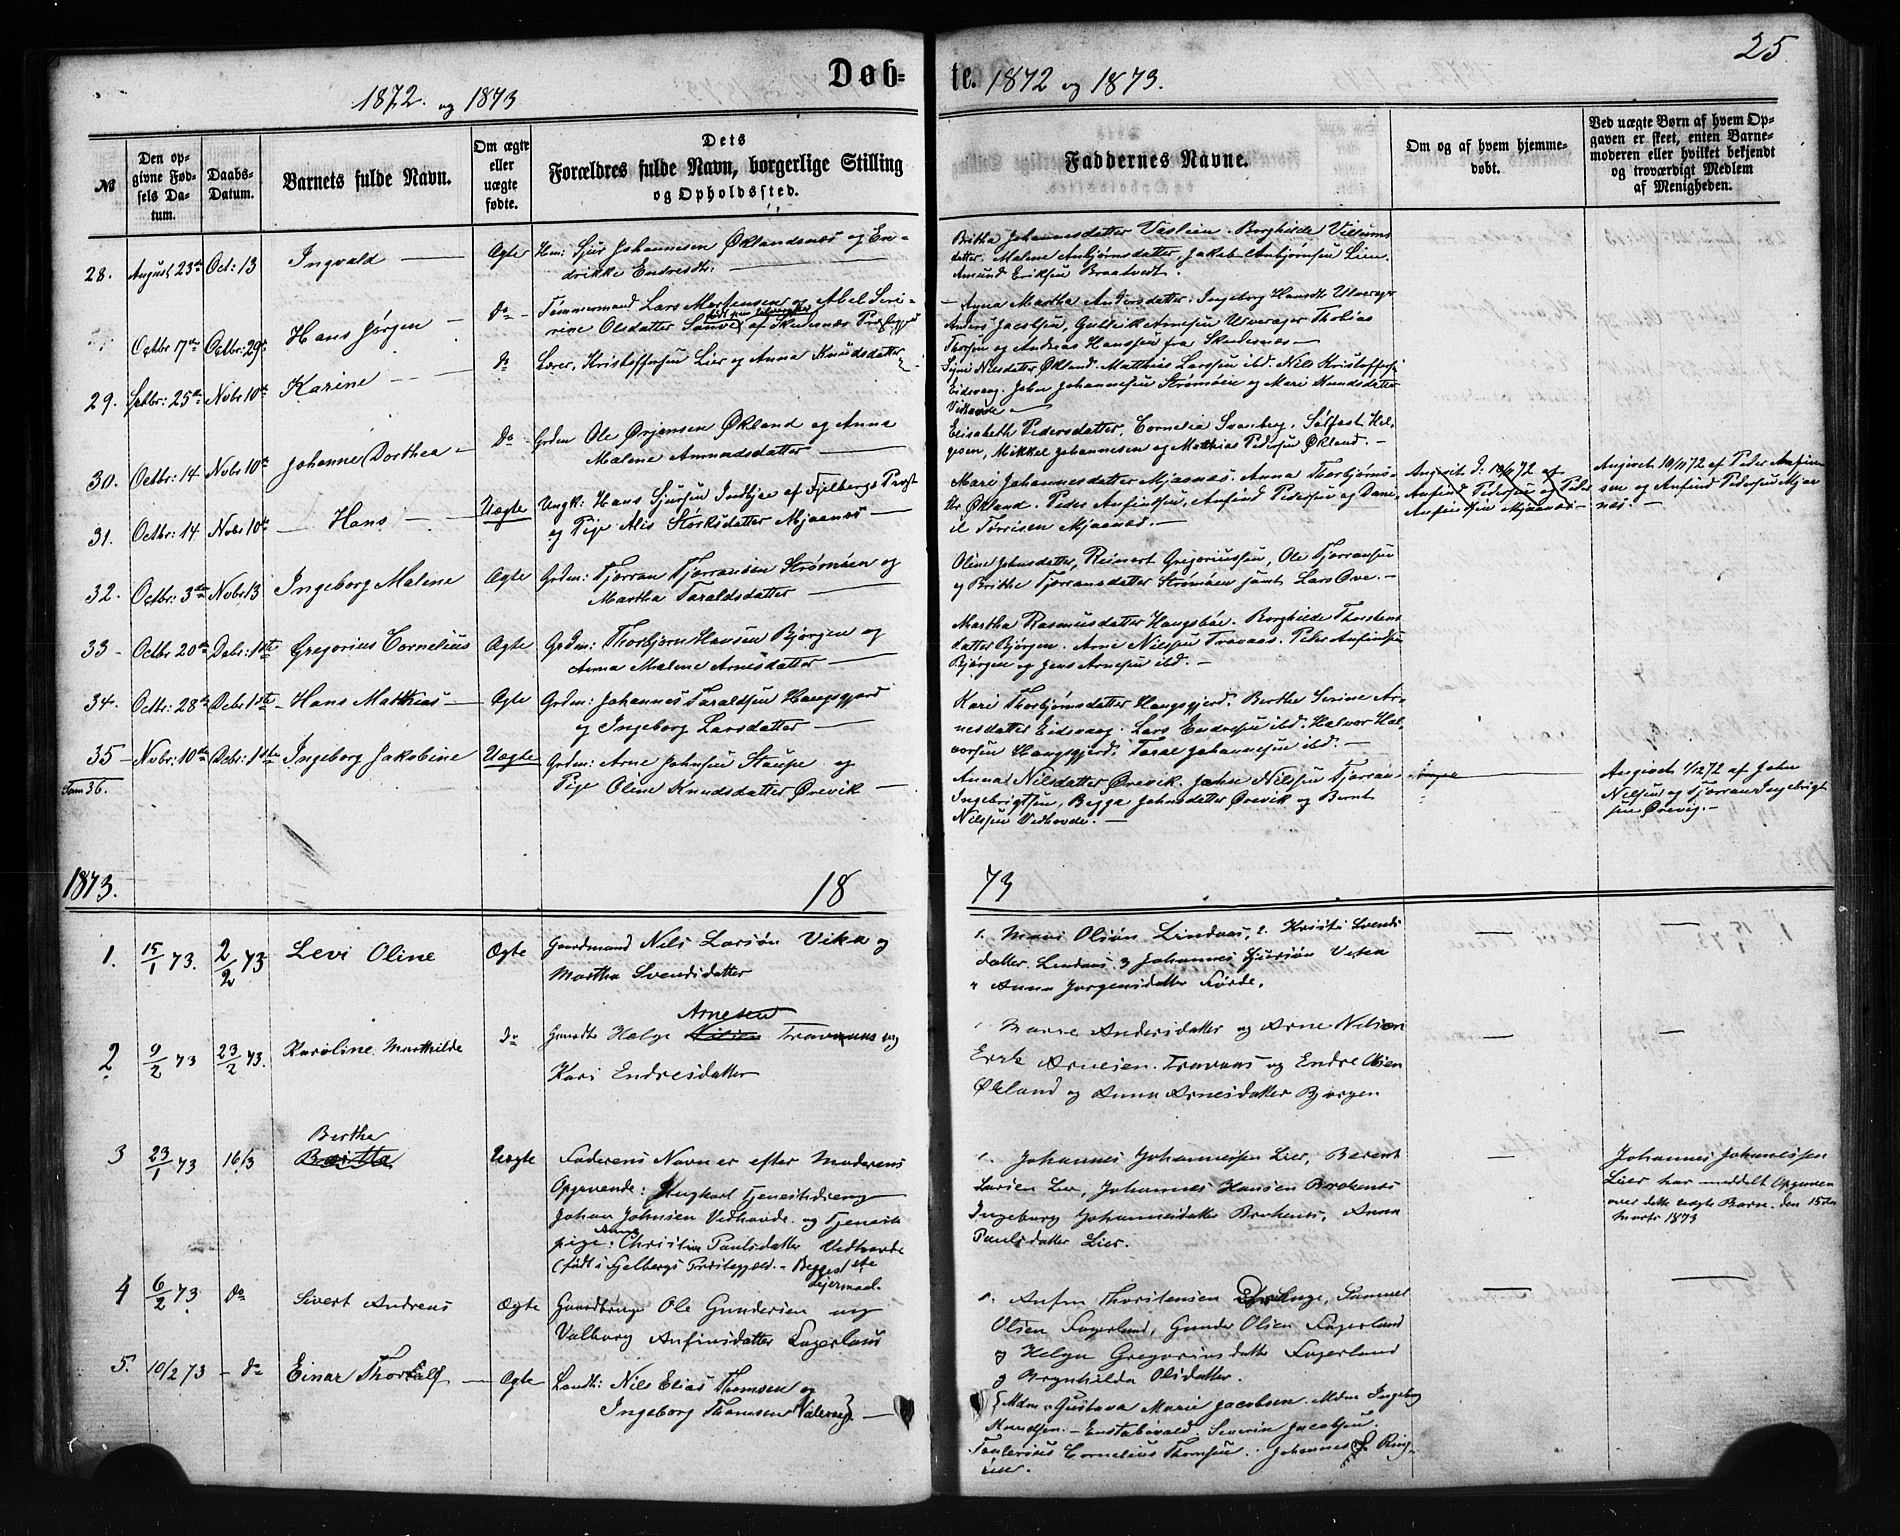 25
Døb-
te. 1872 og 1873.
1872. og 1873
№
Den op-
givne Fød-
sels Da-
tum.
Daabs-
Datum.
Barnets fulde Navn.
Om ægte
eller
uægte
fødte.
Dets
Forældres fulde Navn, borgerlige Stilling
og Opholdssted.
Faddernes Navne.
Om og af hvem hjemme-
døbt.
Ved uægte Børn af hvem Op-
gaven er skeet, enten Barne-
moderen eller hvilket bekjendt
og troværdigt Medlem
af Menigheden.
28. August 23de Oct: 13 Ingvald — Ægte Hm: Sjur Johannesen Øklandsnæs og En-
drikke Endresdtr: —
Britha Johannesdatter Vaslein. Borghilde Villums
datter. Malene Anbjørnsdatter Jakob Anbjørnsen Lien.
Amund Eriksen Braatvedt.
Octbr 17de Octbr: 29de Hans Jørgen — Do — Tømmermand Lars Mortensen og Abel Seri-
rine Olsdatter af Skudesnæs Præstegjæld
— Anna Martha Andersdatter. Ingeborg Hansdtr Utverager
Anders Jacobsen, Gullik Arnesen Utverager Thobias
Thorsen og Andreas Hanssen fra Skudesnæs —
29. Septbr: 25de Novbr 10de Karine — Do Lærer, Kristoffersen Lier og Anna Knudsdatter
Signi Nilsdatter Økland. Matthias Larssen ibd. Nils Kristoffersen
Eidsvaag. John Johannesen Strømøen og Mari Knudsdatter
Vidhovde —
30. Octbr: 14 Novbr 10de Johanne Dorthea — Do — Grdm Ole Ørjansen Økland og Anna
Malene Amundsdatter —
Elisabeth Pedersdatter, Cornelia Svanberg. Sålfast Hel-
gesen, Mikkel Johannesen og Matthias Pedersen Økland. —
31. Octbr: 14 Novbr 10de — Hans — Uægte Ungk: Hans Sjursen Indbjoe af Fjelbergs Prgt
og Pige Alis Størksdatter Mjaanæs —
Mari Johannesdatter Mjaanæs. Anna Thorbjørns-
dtr. Økland. Peder Anfindsen, Anfind Pedersen og Dani-
el Tørrisen Mjaanæs. —
Angivet d: 10/11 72 af
Anfind Pedersen og Peder
Anfindsen Mjaanæs —
Angivet 10/11 72 af Peder Anfind-
sen og Anfind Pedersen Mjaa-
næs. —
32. Octbr: 3die Novbr 13 Ingeborg Malene Ægte Grdm: Tjerran Tjerransen Strømøen og
Martha Taraldsdatter —
Oline Johnsdatter, Reinert Gregoriussen, Ole Tjerransen
og Brithe Tjerransdatter Strømøen samt Lars Ove. —
33 — Octbr 20de Debr: 1ste Gregorius Cornelius Ægte Grdm: Thorbjørn Hansen Bjørgen og
Anna Malene Arnesdatter —
Martha Rasmusdatter Haugsbøe. Borghilde Thorstens
datter Bjørgen. Arne Nilssen Travaas. Peder Anfindsen
Bjørgen og Jens Arnesen ibd. —
34. Octbr: 28de Debr 1ste — Hans Matthias — Ægte Grdm: Johannes Taraldsen Haugsgjerd
og Ingeborg Larsdatter —
Kari Thorbjørnsdatter Haugsgjerd. Berthe Serine Ar-
nesdatter Eidsvaag. Lars Endresen ibd. Halvor Hal-
vorsen Haugsgjerd. Taral Johannesen ibd. —
35 — Novbr: 10de Debr: 1ste Ingeborg Jakobine Uægte Grdm: Arne Johnsen Staupe og
Pige Oline Knudsdatter Ørevik —
Anna Nilsdatter Ørevik. Johne Nilssen Tjerran
Ingebrigtsen, Begga Johnsdatter Ørevik og Bernt
Nilssen Vidhovde. —
Angivet 1/12 72 af John
Nilssen og Tjerran Ingebrigt
sen Ørevig. —
Sum 36.
1873. 18 73
1. 15/1 73. 2/2 73 Levi Oline Ægte Gaardmand Nils Larsøn Vika og
Martha Svendsdatter
1. Mons Olsøn Lindaas, 2. Kristi Svends
datter. Lindaas. 3 Johannes Sjursøn Vika
4 Anna Jørgensdatter Førde.
2 9/2 73 23/2 73. Karoline Marthilde Do Gaardbr Helge Nilsen Arnesen Travaas og
Kari Endresdatter
1. Marie Andersdatter og Arne Nilsen
Erik Arnesen. Travaas og Endre Olsen
Økland og Anna Arnesdatter Bjørgen
3 23/1 73 16/3 Britta Bertha Uægte Faderens Navn er efter Moderens
Opgivende: Ungkarl Tjenestedreng
Johan Johnsen Vidhovde og Tjeneste
pige: Anna Christine Paulsdatter Vidhovde
(født i Fjelbergs Præstegjæld. — Begges 1ste
Leiermaal.
1. Johannes Johannessen Lier, Berent
Larsen Lier, Johannes Hansen Brekenes
Ingeborg Johannesdatter Brekenes, Anna
Paulsdatter Lier.
Johannes Johannessen
Lier har meddelt Opgaven
over dette uægte Barn. den 15de
Marts 1873
4 6/2 73 Do Sivert Andreas Ægte Gaardbruger Ole Gundersen og
Valborg Anfinsdatter Fagerland
1. Anfin Thorstensen Drange, Samuel
Olsen Fagerland, Gunder Olsen Fagerland
og Helga Gregoriusdatter Fagerland
og Brynhilda Olsdatter.
5. 10/2 73 — Do Einar Thoralf — Ægte Landh: Nils Elias Thomsen og
Ingeborg Thomsen Valevåg —
Mdm Gustava Marie Jacobsen. Mdm Ingeborg
Knudsen. — Enstabøvold. Severin Jacobsen.
Cornelius Thomsen. Johannes Ring-